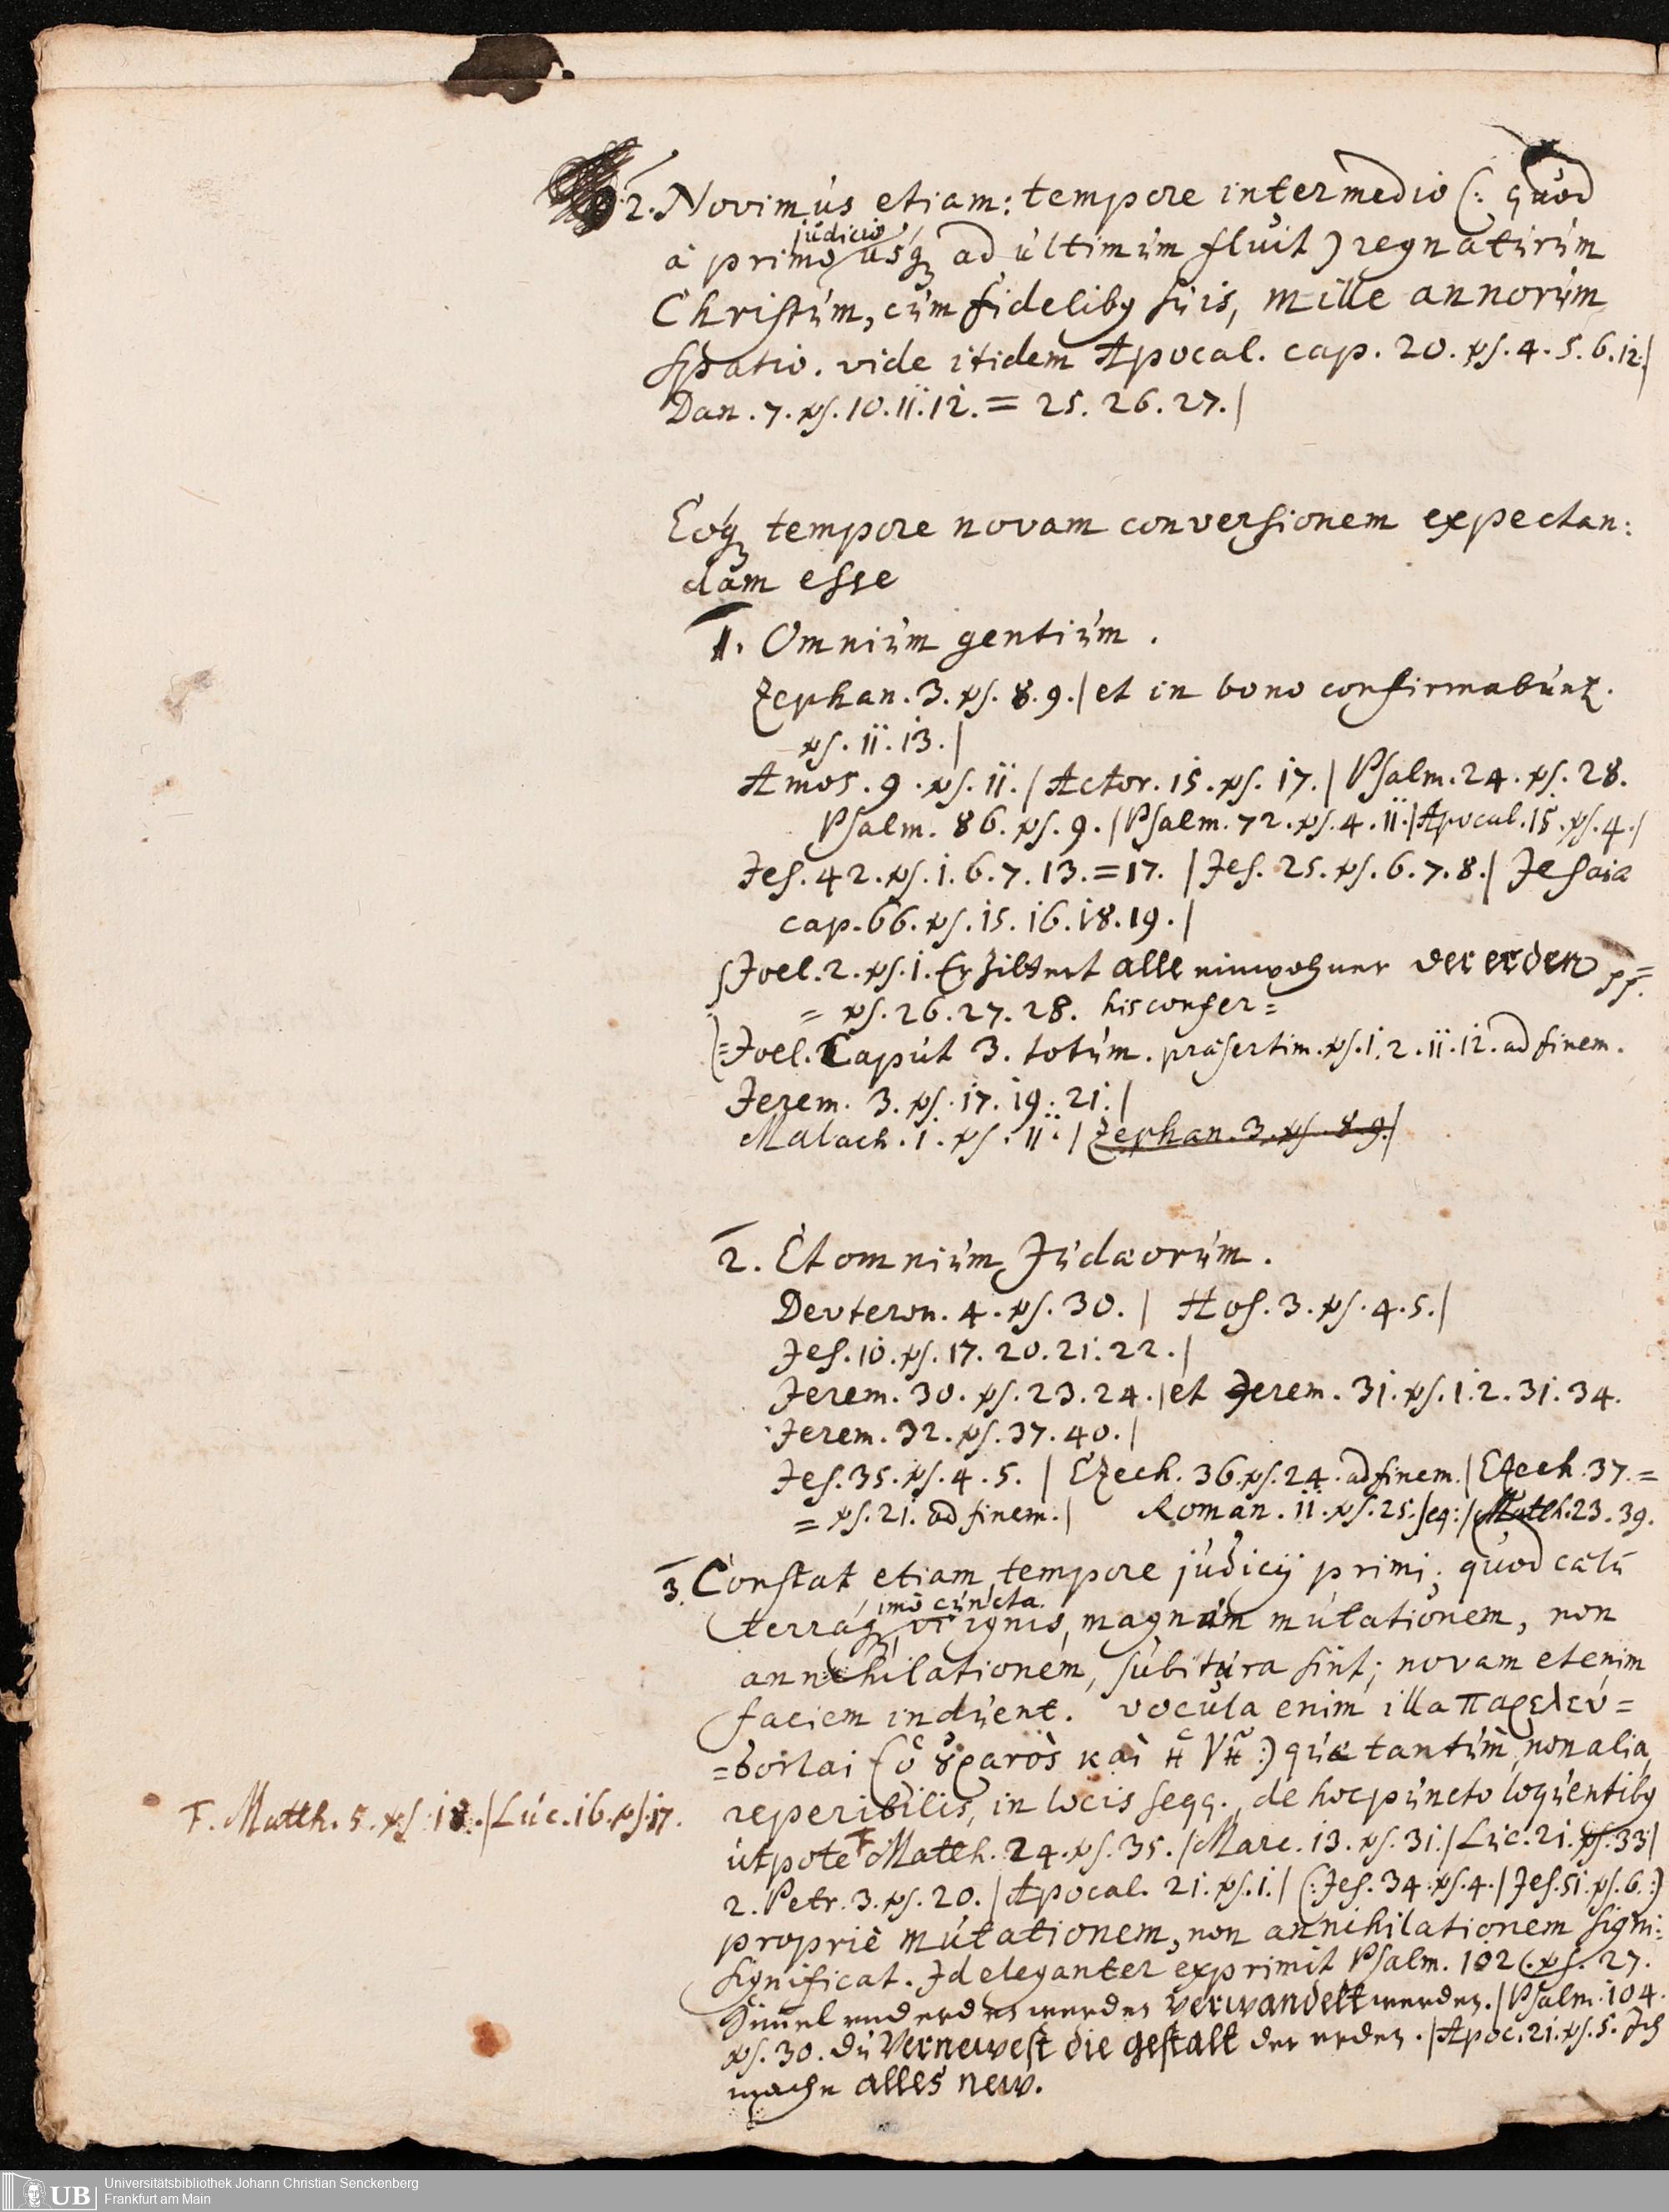 2. Novimus etiam: tempore intermedio (: quod
à primo judicio usq; ad ultimum fluit) regnaturum
Christum, cum fideliby suis, mille annorum
spatio. vide itidem Apocal. cap. 20. vs. 4. 5. 6. 12. |
Dan. 7. vs. 10. 11. 12. = 25. 26. 27. |
Eoq; tempore novam conversionem expectan:
dam esse
1. Omnium gentium.
Zephan. 3. vs. 8. 9. | et in bono confirmabunt.
vs. 11. 13. |
Amos. 9. vs. 11. | Actor. 15. vs. 17. | Psalm. 24. vs. 28.
Psalm. 86. vs. 9. | Psalm. 72. vs. 4. 11. | Apocal. 15. vs. 4. |
Jes. 42. vs. 1. 6. 7. 13. = 17. | Jes. 25. vs. 6. 7. 8. | Jesaia
cap. 66. vs. 15. 16. 18. 19. |
Joel. 2. vs. 1. Erzittert alle einwohner der erden
= vs. 26. 27. 28. his confer =
= Joel. Caput 3. totum. præsertim. vs. 1. 2. 11. 12. ad finem.
Jerem. 3. vs. 17. 19. 21. |
Malach. 1. vs. 11. | Zephan. 3. vs. 8. 9. |
2. Et omnium Judæorum.
Deuteron. 4. vs. 30. | Hos. 3. vs. 4. 5. |
Jes. 10. vs. 17. 20. 21. 22. |
Jerem. 30. vs. 23. 24. | et Jerem. 31. vs. 1. 2. 31. 34.
Jerem. 32. vs. 37. 40. |
Jes. 35. vs. 4. 5. | Ezech. 36. vs. 24. ad finem. | Ezech. 37. =
= vs. 21. ad finem. | Roman. 11. vs. 25. seq: | Matth. 23. 39.
3. Constat etiam, tempore judicij primi; quod cælū
terraq;, imò cuncta vi ignis, magnam mutationem, non
annihilationem, subitura sint; novam etenim
faciem induent. vocula enim illa παρελεύ=
=σονται (ὁ ȣρανὸς καὶ ἡ γῆ :) quæ tantùm, non alia,
reperibilis, in locis seqq., de hoc puncto loquentiby
T. Matth. 5. vs. 18. | Luc. 16. vs. 17.
utpote T Matth. 24. vs. 35. | Marc. 13. vs. 31. | Luc. 21. vs. 33 |
2. Petr. 3. vs. 20. | Apocal. 21. vs. 1. | (: Jes. 34. vs. 4. | Jes. 51. vs. 6. :)
propriè mutationem, non annihilationem signi:
significat. Id eleganter exprimit Psalm. 102 (. vs. 27.
Himmel und erden werden verwandelt werden. | Psalm. 104.
vs. 30. du Vernewest die gestalt der erden. | Apoc. 21. vs. 5. Ich
mache alles new.
UB
Universitätsbibliothek Johann Christian Senckenberg
Frankfurt am Main